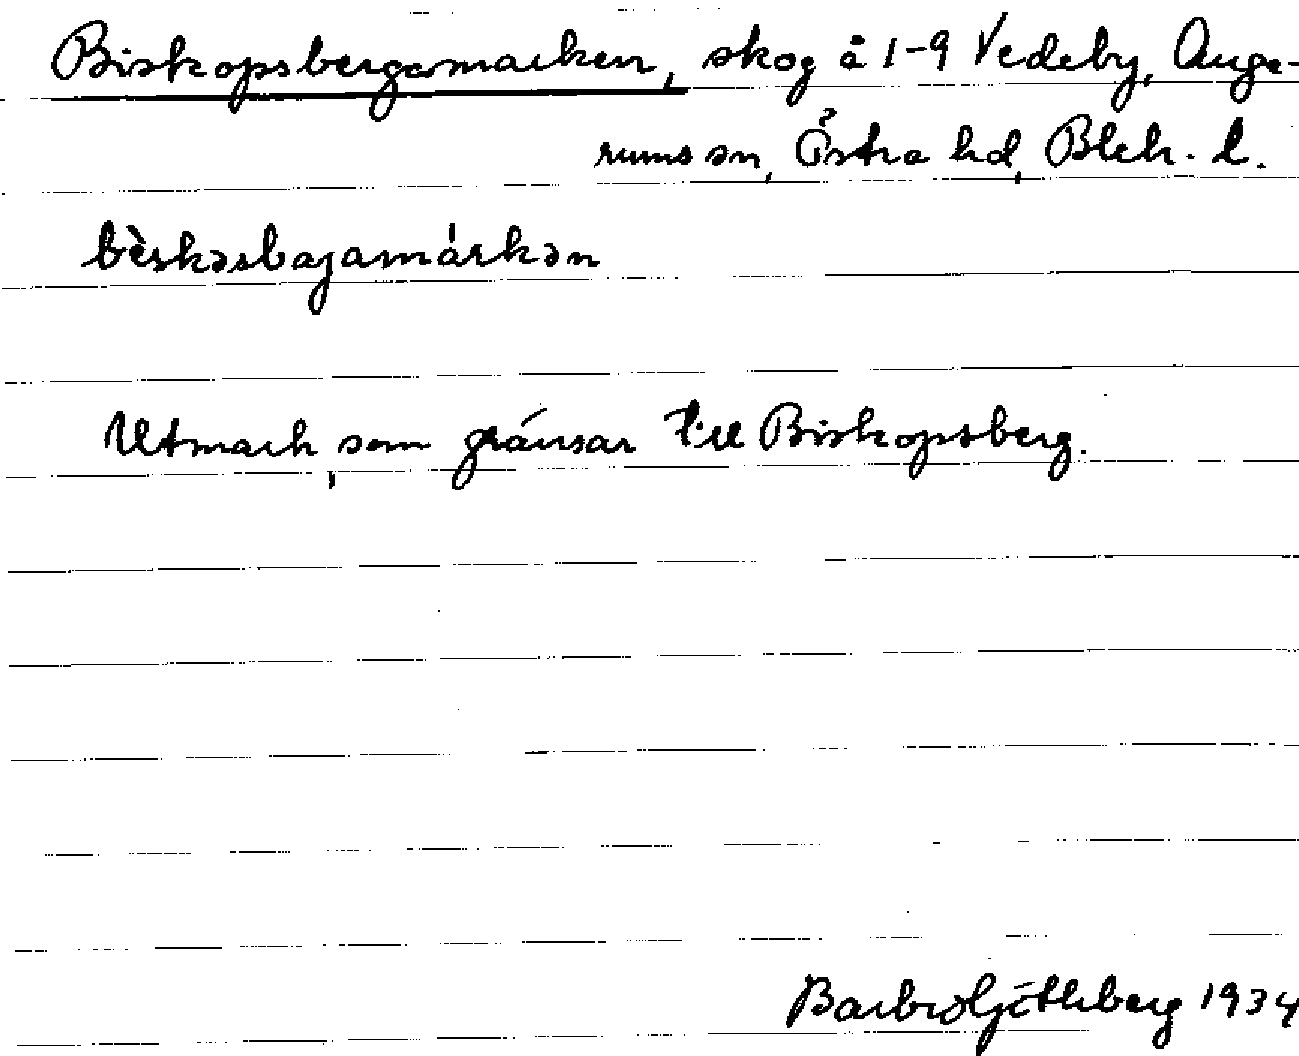 Biskopsbergamarken, skog å 1-9 Vedeby, Auge-
rums sn, Östra hd, Blek. l.
bèskəsbajamárkən
Utmark, som gränsar till Biskopsberg.
Barbro Götlberg 1934